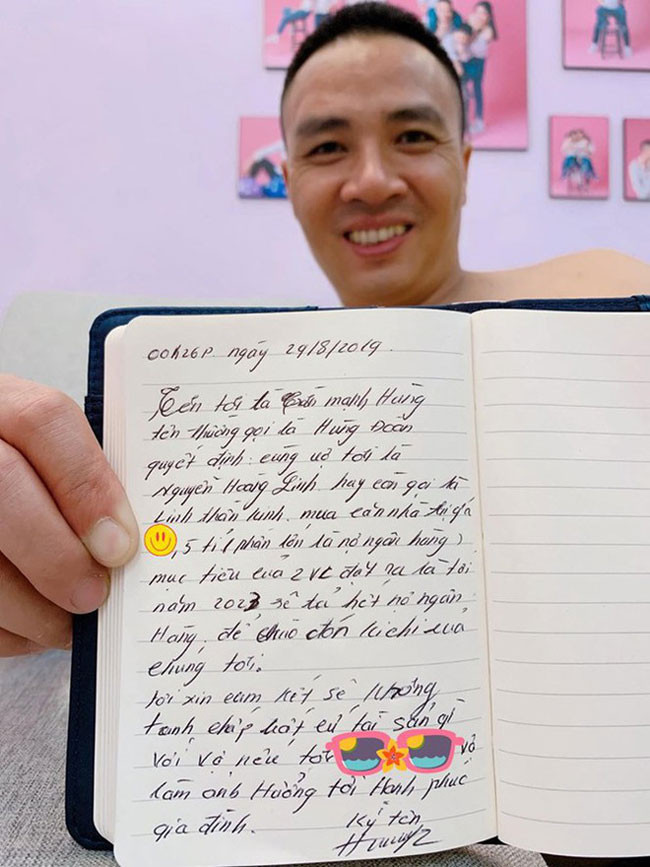 00h26p. ngày 29/8/2019.
Tên tôi là Trần mạnh Hùng
tên thường gọi là Hùng Đoàn
quyết định: cùng vợ tôi là
Nguyễn Hoàng Linh hay còn gọi là
Linh thần kinh. mua căn nhà trị giá
,5 tỉ ( phần lớn là nợ ngân hàng )
mục tiêu của 2 vc đặt ra là tới
năm 2023 sẽ trả hết nợ ngân
Hàng. để chào đón kichi của
chúng tôi.
tôi xin cam kết sẽ không
tranh chấp bất cứ tài sản gì
với vợ nếu tôi
làm ảnh Hưởng tới Hạnh phúc
gia đình.
Ký tên